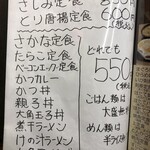 さしみ定食
とり唐揚定食 600円
さかな定食
たらこ定食
ベーコンエッグ定食
カツカレー
かつ丼
親子丼
大魚玉子丼
煮干ラーメン
けの汁ラーメン
どれでも
550
ごはん類は
大盛無料
めん類は
半ライス